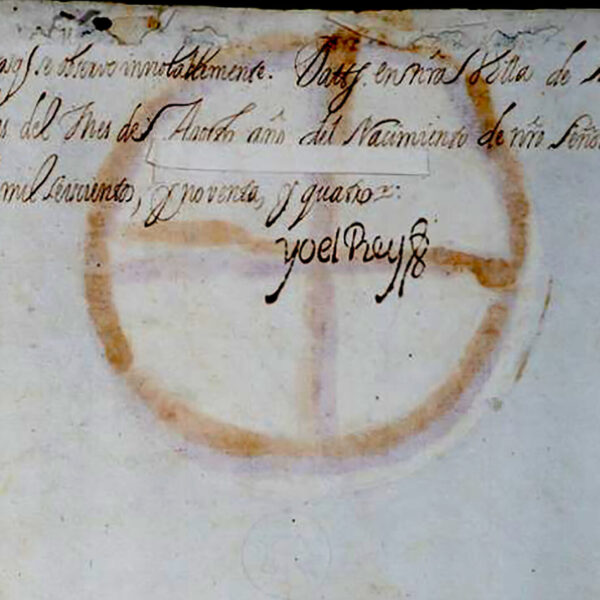 se observo inviolablemente. Datts. en nrã Villa de
del Mes de Agosto año del Nacimiento de nrõ Señor
mil seiscientos, y noventa, y quatro:
yo el Rey